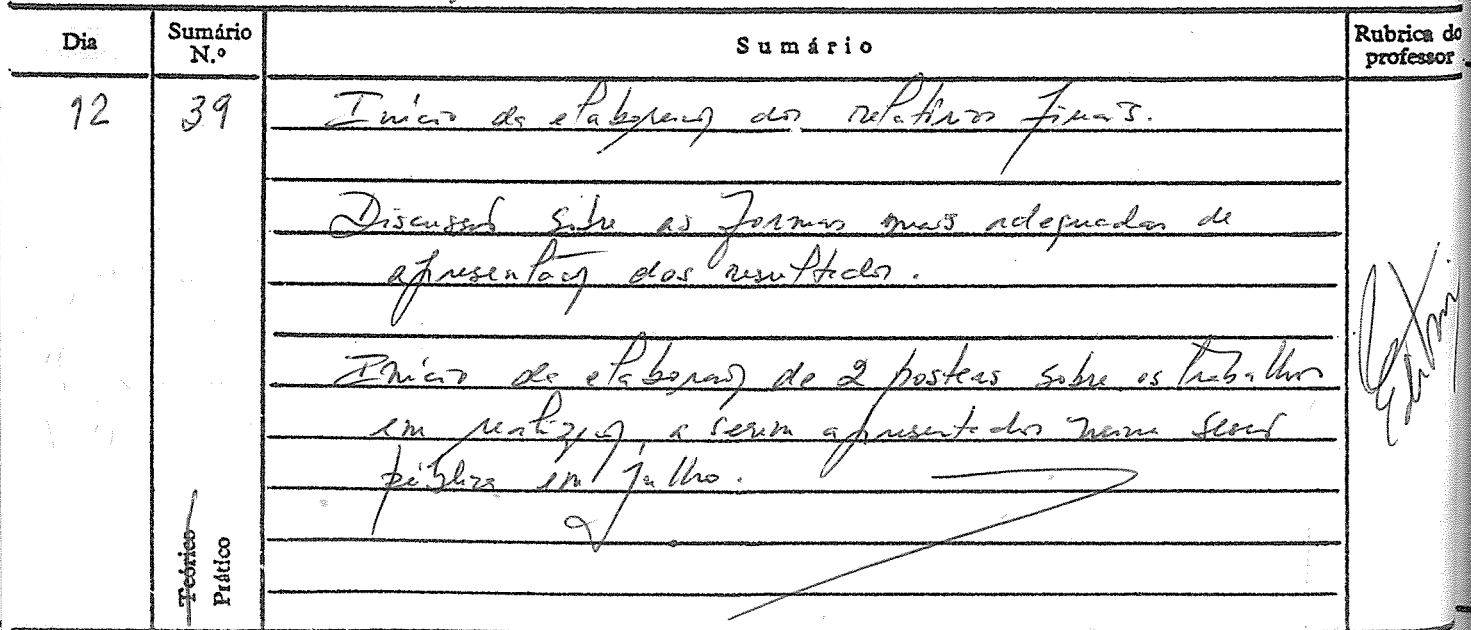 Dia
Sumário N.º
Sumário
Rubrica do professor
12
39
Início da elaboração dos relatórios finais.
Discussão sobre as formas mais adequadas de
apresentação dos resultados.
Início da elaboração de 2 posters sobre os trabalhos
em realização, a serem apresentados numa sessão
pública em julho.
Teórico
Prático